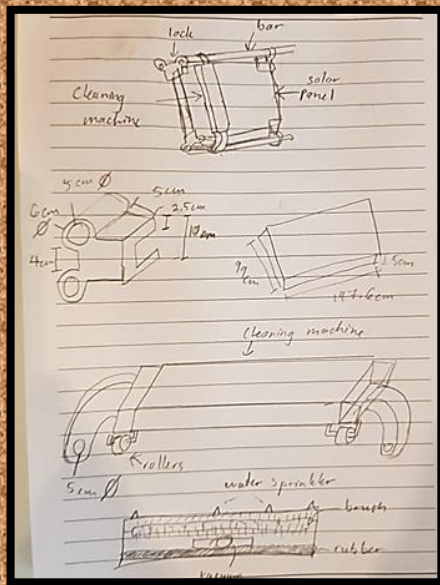 lock
bar
Cleaning
machine
solar
panel
5cm
2.5cm
6cm
Ø
10cm
4cm
99
cm
1.5cm
197.6cm
Cleaning machine
rollers
5cm Ø
water sprinkler
brush
rubber
vacuum